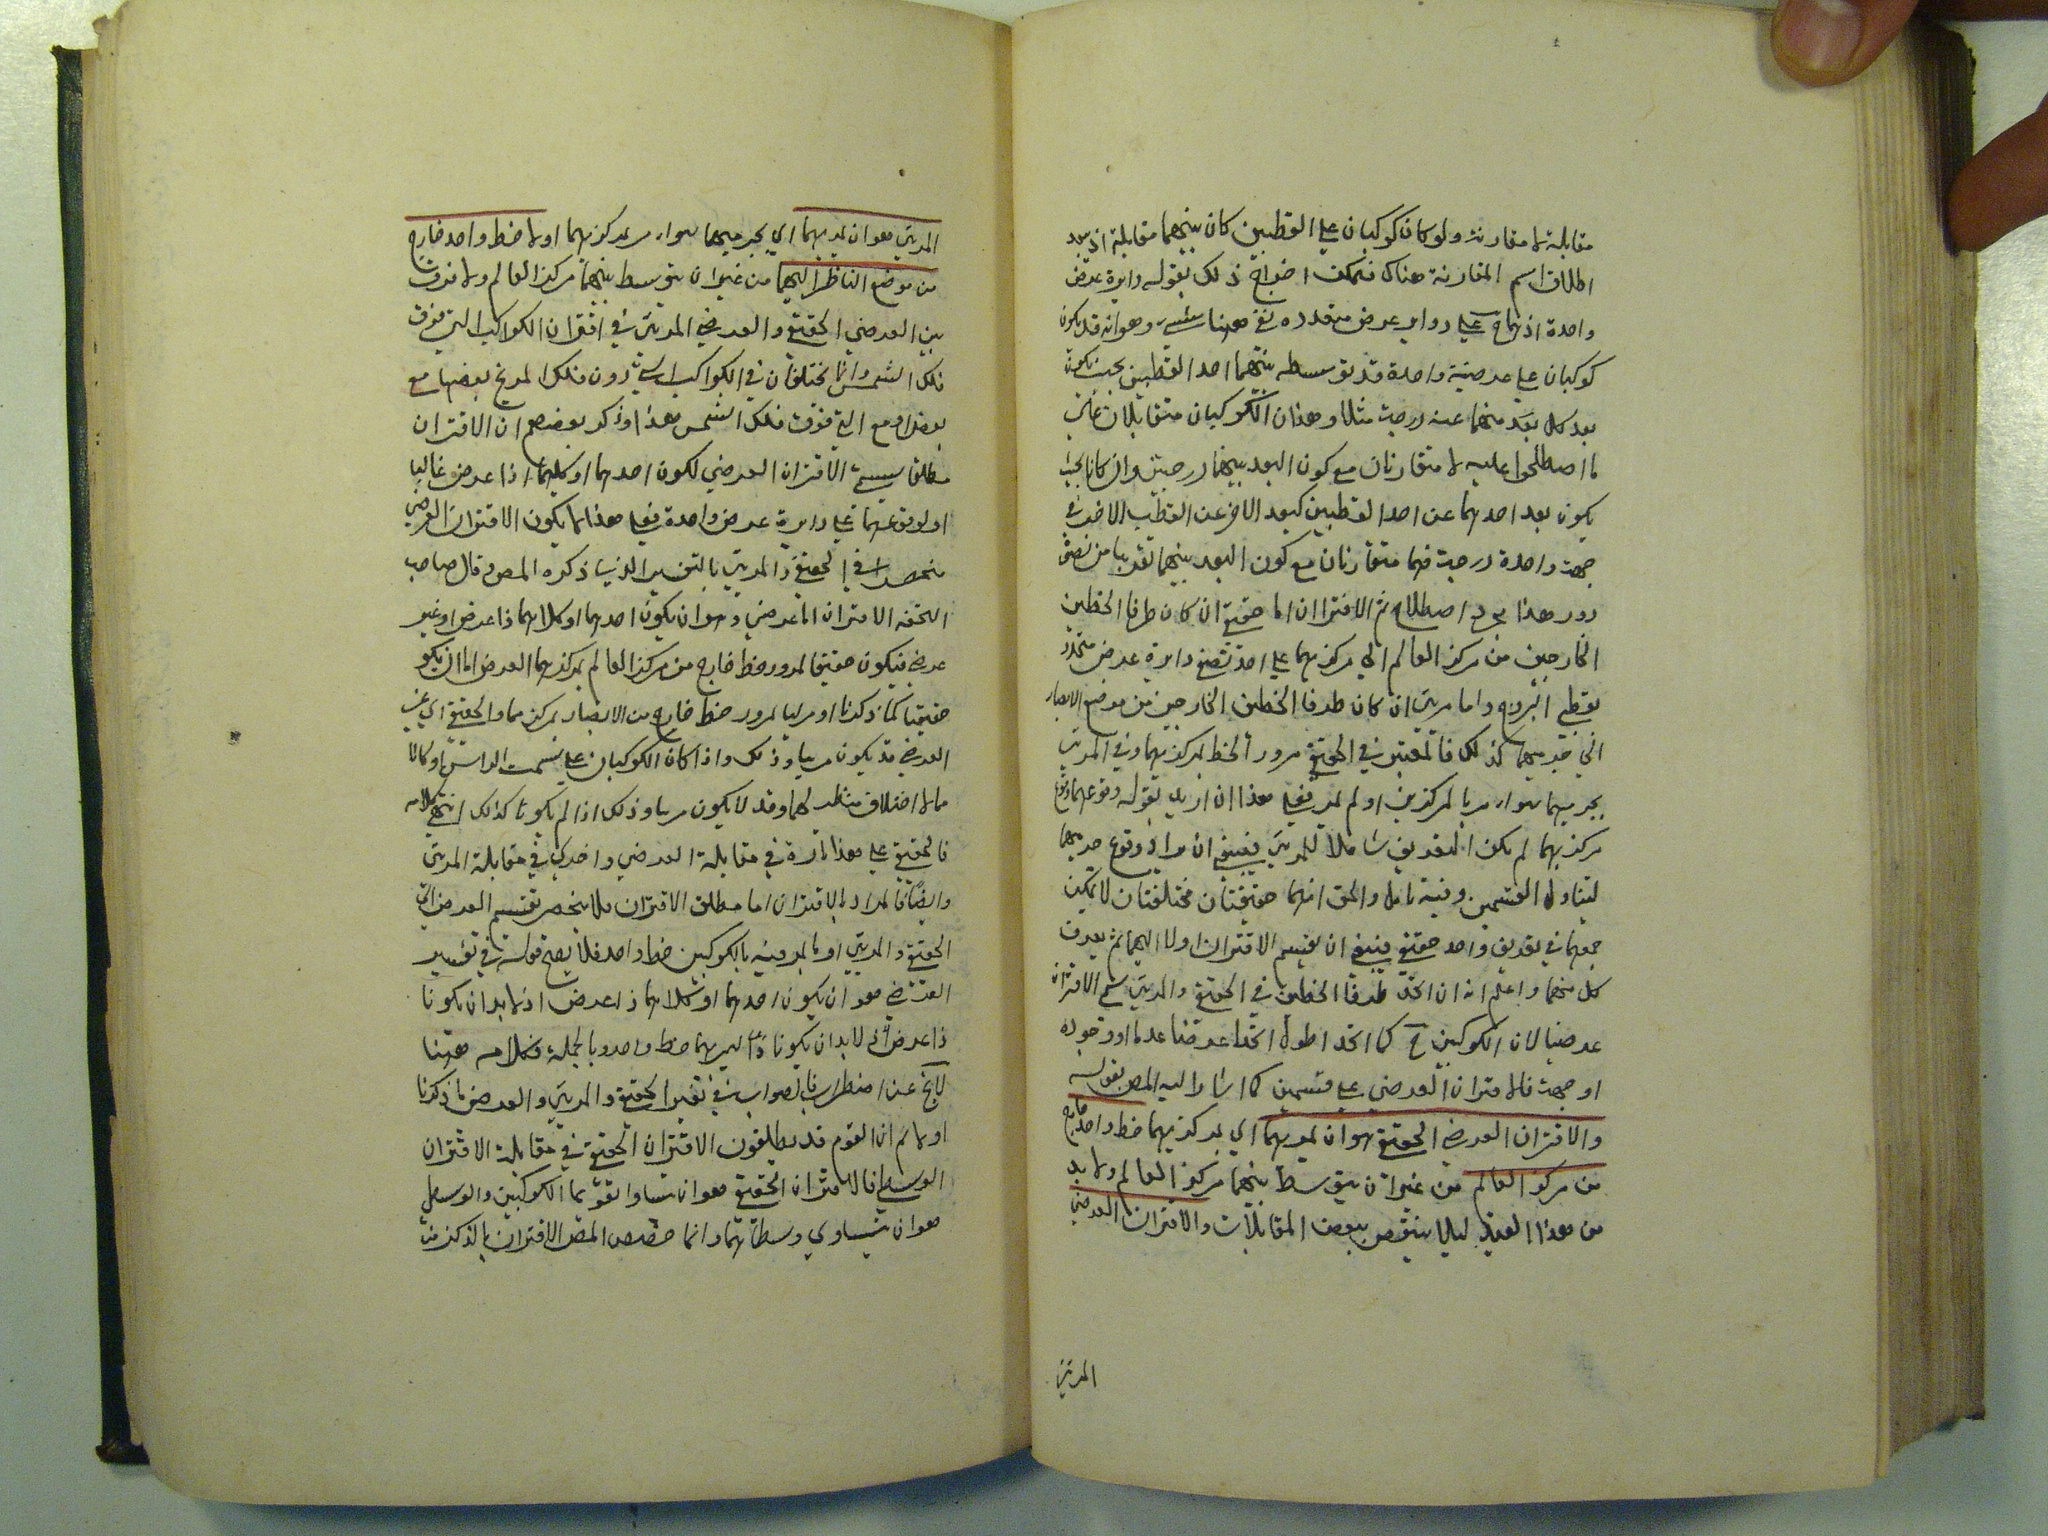 مقابلة لا مقارنة ولو كان كوكبان على القطبين كان بينهما مقابلة اذ يبعد
اطلاق اسم المقارنة هناك فيمكن اخراج ذلك بقوله دايرة عرض
واحدة اذ هما ح على دواير عرض متعدده بقي ههنا شيء وهو انه قد يكون
كوكبان على عرضية واحدة قد توسط بينهما احد القطبين بحيث يكون
بعد كل بعد منهما عنه درجة مثلا وهذان الكوكبان متقابلان على
ما اصطلحوا عليه لا متقارنان مع كون البعد بينهما درجتين وان كانا بحيث
يكون بعد احدهما عن احد القطبين كبعد الاخر عن القطب الاخر في
جهة واحدة درجة فهما متقارنان مع كون البعد بينهما تقريبا من نصف
دور هذا مجرد اصطلاح ثم الاقتران اما حقيقي ان كان طرفا الخطين
الخارجين من مركز العالم الى مركزيهما على احد نصفي دايرة عرض متحدد
بقطبي البروج واما مرئي ان كان طرفا الخطين الخارجين من موضع الابصار
الى جرميهما كذلك فالمعتبر في الحقيقي مرور الخط بمركزيهما وفي المرئي
بجرميهما سواء مر بالمركزين او لم يمر فعلى هذا ان اريد بقوله وقوعهما وقوع
مركزيهما لم يكن التعريف شاملا للمرئي فينبغي ان يراد وقوع جرميهما
ليتناول القسمين وفيه تامل والحق انهما حقيقتان مختلفتان لا يمكن
جمعهما في تعريف واحد حقيقي فينبغي ان يقسم الاقتران اولا اليهما ثم يعرف
كل منهما واعلم انه ان اتحد طرفا الخطين في الحقيقي والمرئي سمي الاقتران
عرضيا لان الكوكبين ح كما اتحدا طولا اتحدا عرضا عدما او وجودا
او جهة فالاقتران العرضي على قسمين كما اشار اليه المص بقوله
والاقتران العرضي الحقيقي هو ان يمر بهما اي بمركزيهما خط واحد خارج
من مركز العالم من غير ان يتوسط بينهما مركز العالم ولا بد
من هذا القيد ليلا ينتقض ببعض المقابلات والاقتران العرضي
المرئي
المرئي هو ان يمر بهما اي بجرميهما سواء مر بمركزيهما او لا خط واحد خارج
من موضع الناظر اليهما من غير ان يتوسط بينهما مركز العالم ولا فرق
بين العرضي الحقيقي والعرضي المرئي في اقتران الكواكب التي فوق
فلك الشمس وانما يختلفان في الكواكب التي دون فلك المريخ بعضها مع
بعض او مع التي فوق فلك الشمس هذا وذكر بعضهم ان الاقتران
مطلقا يسمى الاقتران العرضي لكون احدهما او كليهما اذا عرض غالبا
او لوقوعهما على دايرة عرض واحدة فعلى هذا لا يكون الاقتران العرضي
منحصرا في الحقيقي والمرئي بالتفسير الذي ذكره المص وقال صاحب
التحفه الاقتران اما عرضي وهو ان يكون احدهما او كلاهما ذا عرض او غير
عرضي فيكون حقيقيا لمرور خط خارج من مركز العالم بمركزيهما والعرضي اما ان يكون
حقيقيا كما ذكرنا او مرئيا لمرور خط خارج من الابصار بمركزيهما والحقيقي اي غير
العرضي قد يكون مرئيا وذلك واذا كان الكوكبان على سمت الراس او كانا
مما لا اختلاف منظر لهما وقد لا يكون مرئيا وذلك اذا لم يكونا كذلك انتهى كلامه
فالحقيقي على هذا تارة في مقابلة العرضي واخرى في مقابلة المرئي
وايضا فالمراد بالاقتران اما مطلق الاقتران فلا ينحصر تقسيم العرضي الى
الحقيقي والمرئي او ما يمر فيه بالكوكبين خط واحد فلا يصح قوله في تفسير
العرضي هو ان يكون احدهما او كلاهما ذا عرض اذ لا بد ان يكونا
ذا عرض اي لا بد ان يكونا ليمر بهما خط واحد وبالجملة فكلامه ههنا
لا يخ عن اضطراب فالصواب في تفسير الحقيقي والمرئي والعرضي ما ذكرنا
اولا ثم ان القوم قد يطلقون الاقتران الحقيقي في مقابلة الاقتران
الوسطي فالاقتران الحقيقي هو ان يتساوا تقويما الكوكبين والوسطي
هو ان يتساوي وسطاهما وانما خصص المص الاقتران بالذكر من